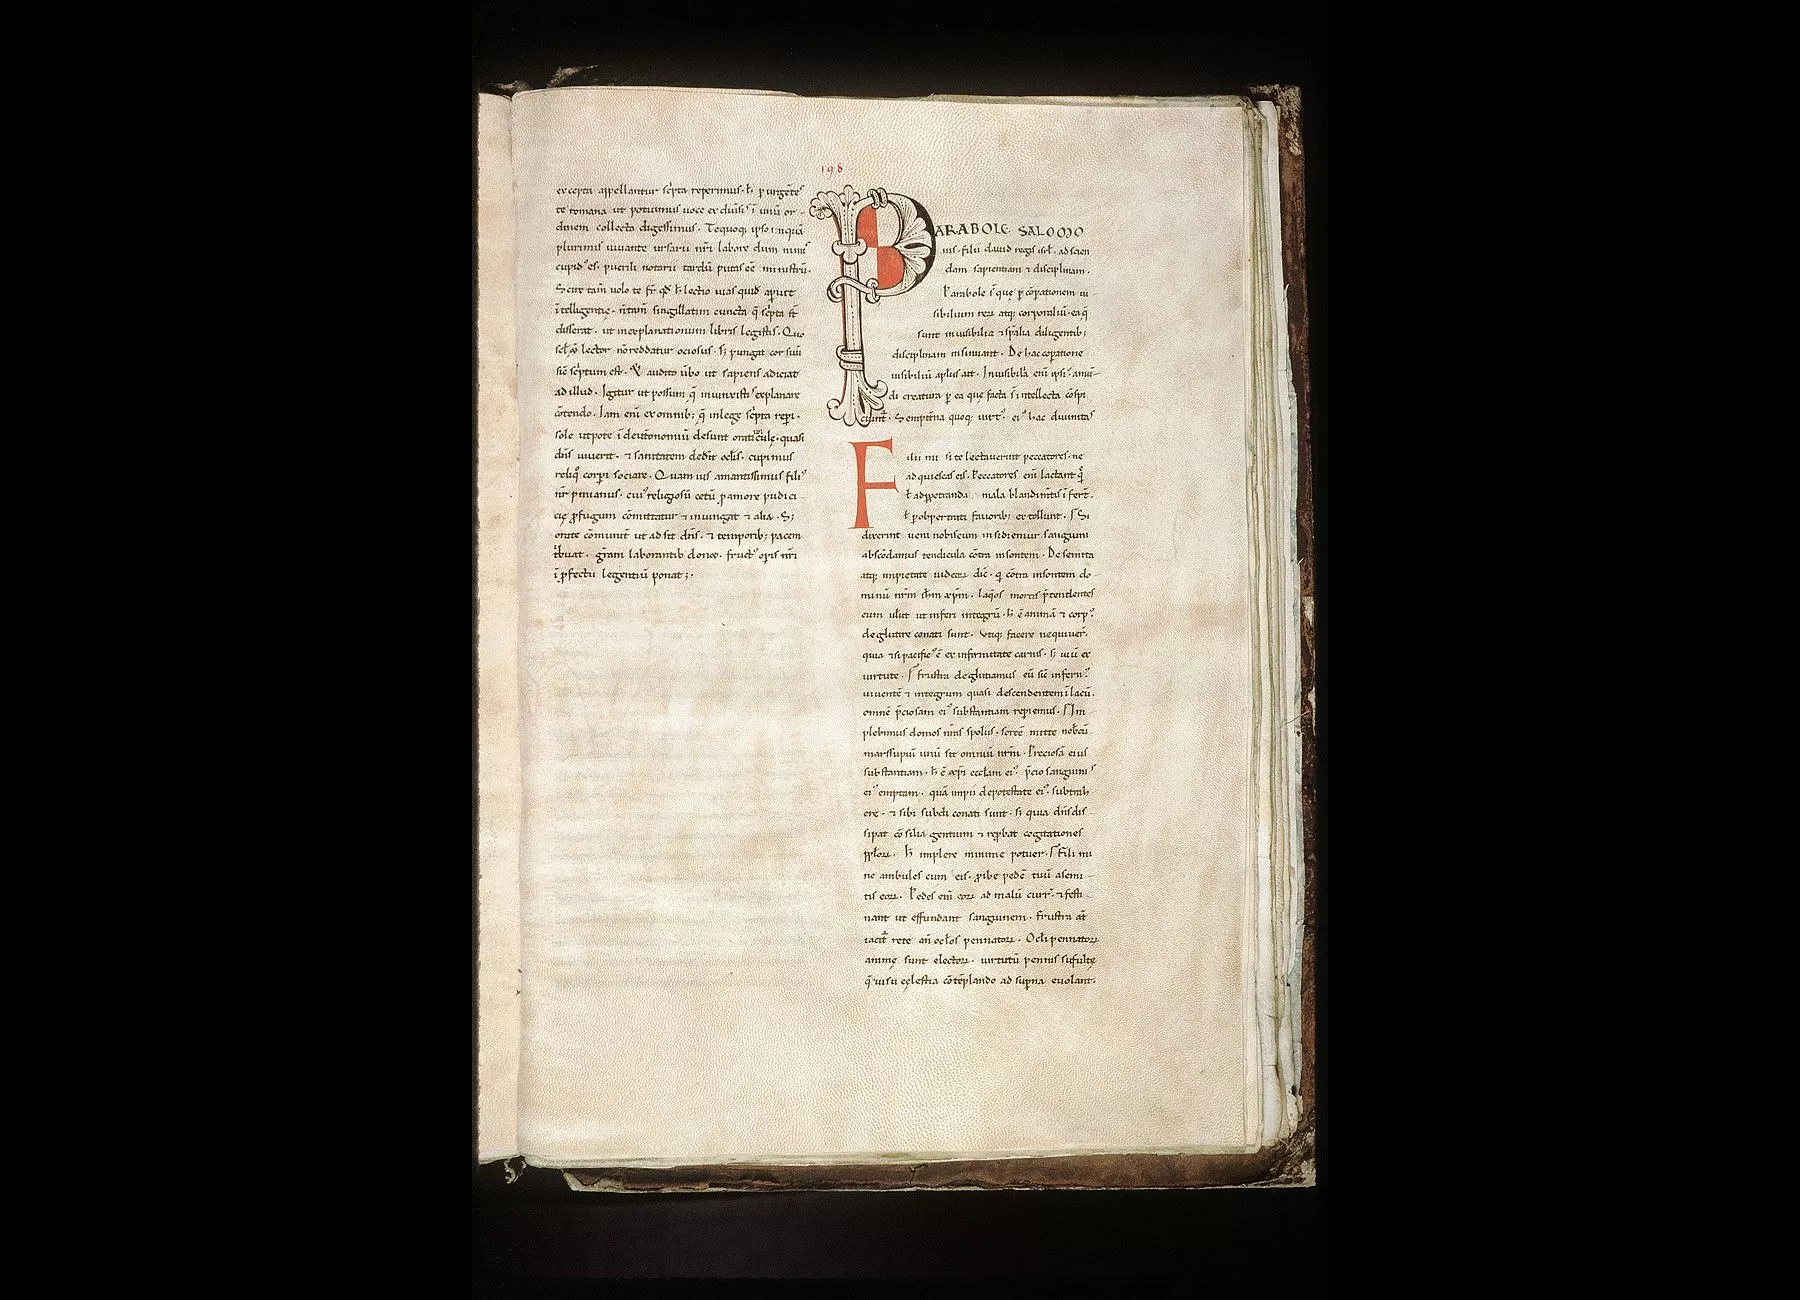 excerpta appellantur sc̄pta reperimus · h̄ ꝑ urgēte
te romana ut potuimus uoce ex diuisi ī unū or-
dinem collecta digessimus · Tequoq; ipso inquā
plurimis iuuante ursarii nr̄i labore dum nimi
cupidꝰ es · puerili notarii tardū putas eē ministrū ·
Scire tam̄ uolo te fr̄ qđ h̄ lectio uias quidē aperit
ītelligentię · n̄ tam̄ singillatim cuncta q̄ sc̄pta st̄
disserat · ut inexplanationum libris legistis · Quo
lector nō reddatur ociosus · s; pungat cor suū
sic̄ sc̄ptum est · V̓ audito ūbo ut sapiens adiciat
ad illud · Igitur ut possum q̄ iniunxisti explanare
cōtendo · Iam eni ex omnib; q̄ in lege sc̄pta repi ·
sole utpote ī deutōnomiū desunt oratiūculę · quasi
dn̄s uiuerit · ⁊ sanitatem dedit ocl̄is · cupimus
reliq̄ corpi sociare · Quam uis amantissimus filiꝰ
nr̄ pinianus · cuiꝰ religiosū cetū p amore pudici-
cię ꝓfugum cōmittatur ⁊ iniungat ⁊ alia · S;
orate comunit̄ ut ad sit dn̄s · ⁊ temporib; pacem
t̄buat · gr̄am laborantib donet · fructꝰ opis nr̄i
ī ꝓfectu legentiū ponat ;·
198
PARABOLE SALOMO
nis · filii dauid regis isrl̄ · ad scien
dam sapientiam ⁊ disciplinam ·
Parabole s̄ quę ꝑ cōpationem ui
sibilium reꝝ atq; corporaliū · ea q̄
sunt inuisibilia ⁊ sp̄alia diligentib;
disciplinam insinuant · De hac cōpatione
uisibiliū apl̄us ait · Inuisibilia eni ipsiꝰ a mū-
di creatura ꝑ ea quę facta s̄ intellecta cōspi
ciunt̄ · Sempitna quoq; uirtꝰ · eiꝰ hac diuinitas
Filii mi si te lactauerint peccatores · ne
adquiescas eis · Peccatores eni lactant q̄
ł ad ppetranda mala blandimtis īfert̄ ·
ł pobpertrati fauorib; extollunt · Si
dixerint ueni nobiscum insidiemur sanguini
abscōdamus tendicula cōtra insontem · De semita
atq; impietate iudeoꝝ dic̄ · q̄ cōtra insontem do-
minū nr̄m ihm xp̄m · laq̄os mortis p̄tendentes
eum uł ut inferi integrū · h̄ ē animā ⁊ corpꝰ
deglutire conati sunt · Vtiq; facere nequiuer̄ ·
quia ⁊ si pacificꝰ ē ex infirmitate carnis · s; uiū ex
uirtute · frustra deglutiamus eū sic̄ infernꝰ
uiuentē ⁊ integrum quasi descendentem ī lacū ·
omnē p̄ciosam eiꝰ substantiam repiemus · Im
plebimus domos nr̄as spoliis · sortē mitte nobcū
marsupiū unū sit omniū nr̄m · Preciosā eius
substantiam · h̄ ē xp̄i eccl̄am eiꝰ p̄cio sanguinis
eiꝰ emptam · quā impii de potestate eiꝰ · subtrah
ere · ⁊ sibi subdi conati sunt · s; quia dn̄s dis
sipat cōsilia gentium ⁊ rep̄bat cogitationes
ppl̄oꝝ · h̄ implere minime potuer̄ · Fili mi
ne ambules cum eis · phibe pedē tuū a semi-
tis eoꝝ · Pedes eni eoꝝ ad malū curr̄ · ⁊ festi
nant ut effundant sanguinem · Frustra at̄
iacit̄ rete an̄ ocl̄os pennatoꝝ · Ocl̄i pennatoꝝ
animę sunt electoꝝ · uirtutū pennis sufultę
q̄ uisu cęlestia cōtēplando ad supna euolant ·